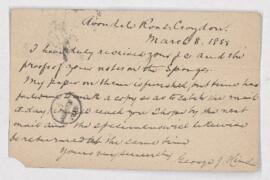 Avondale Road, Croydon.
March 8. 1889
I have duly received your p.c. and the
proof of your notes on the Sponges.
My paper on them is finished, but time has
failed me to make a copy so as to catch the mail
to-day, it will reach you I hope by the next
mail and the specimens will likewise
be returned at the same time
Yours very sincerely
George J. Hinde